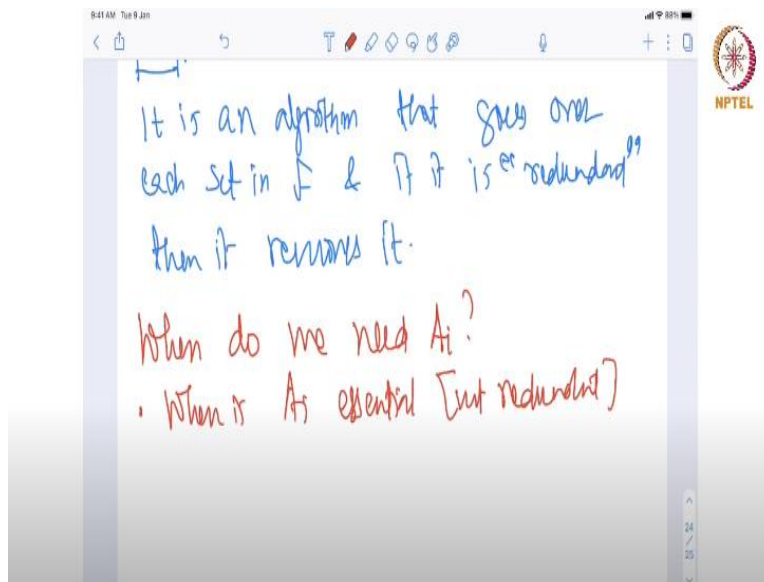 9:41 AM Tue 9 Jan
88%
NPTEL
It is an algorithm that goes over
each set in F & if it is "redundant"
then it removes it.
When do we need Ai?
. When is Ai essential [not redundant]
24
/
25